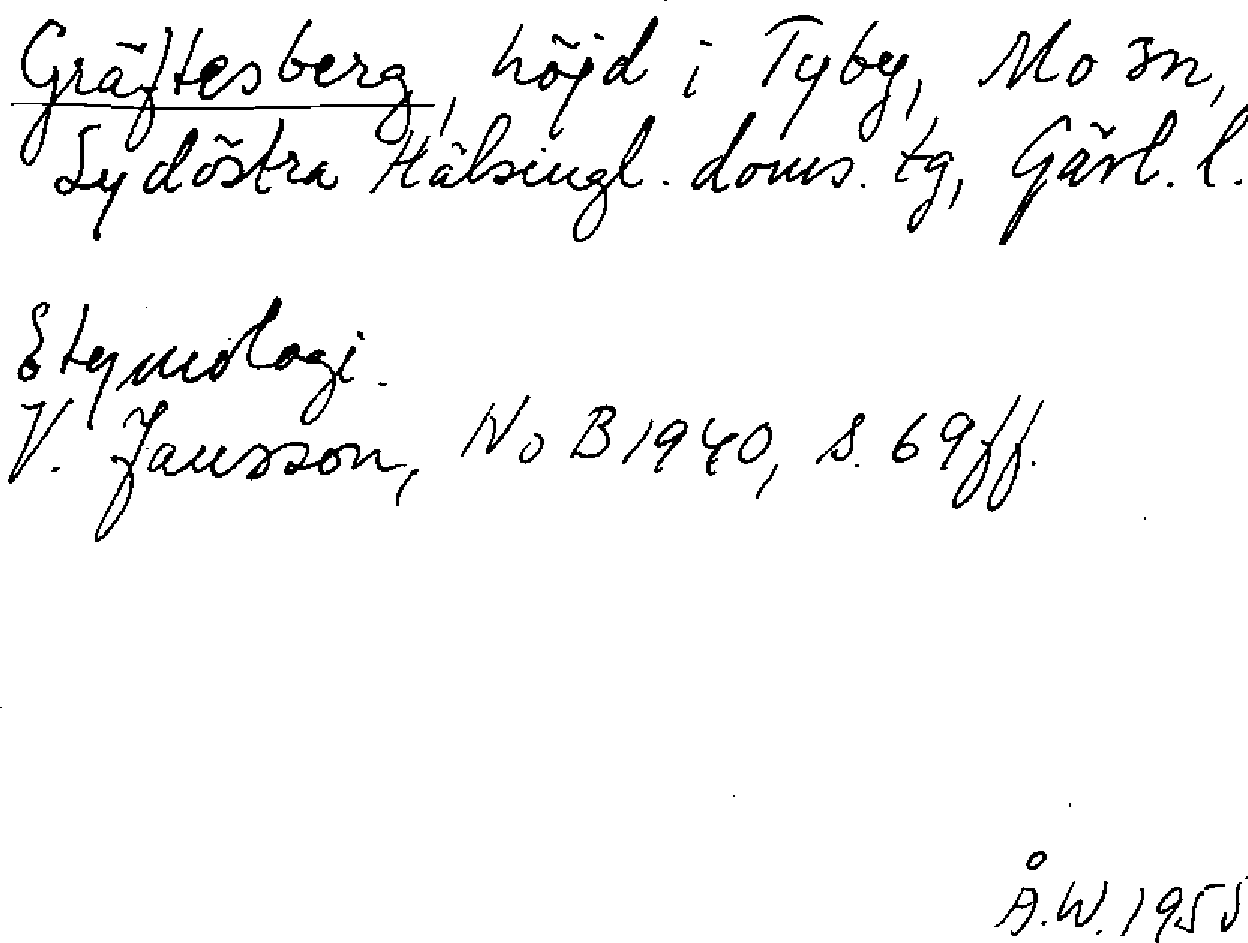 Gräftesberg, höjd i Tyby, Mo sn,
Sydöstra Hälsingl. doms. tg, Gävl. l.
Etymologi.
V. Jansson, NoB 1940, s. 69ff.
Å.W. 1955